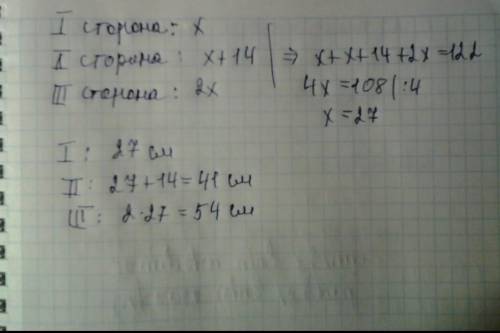 I сторона: x
II сторона: x+14 ⇒ x+x+14+2x=122
III сторона: 2x 4x=108|:4
x=27
I: 27 см
II: 27+14=41 см
III: 2·27=54 см